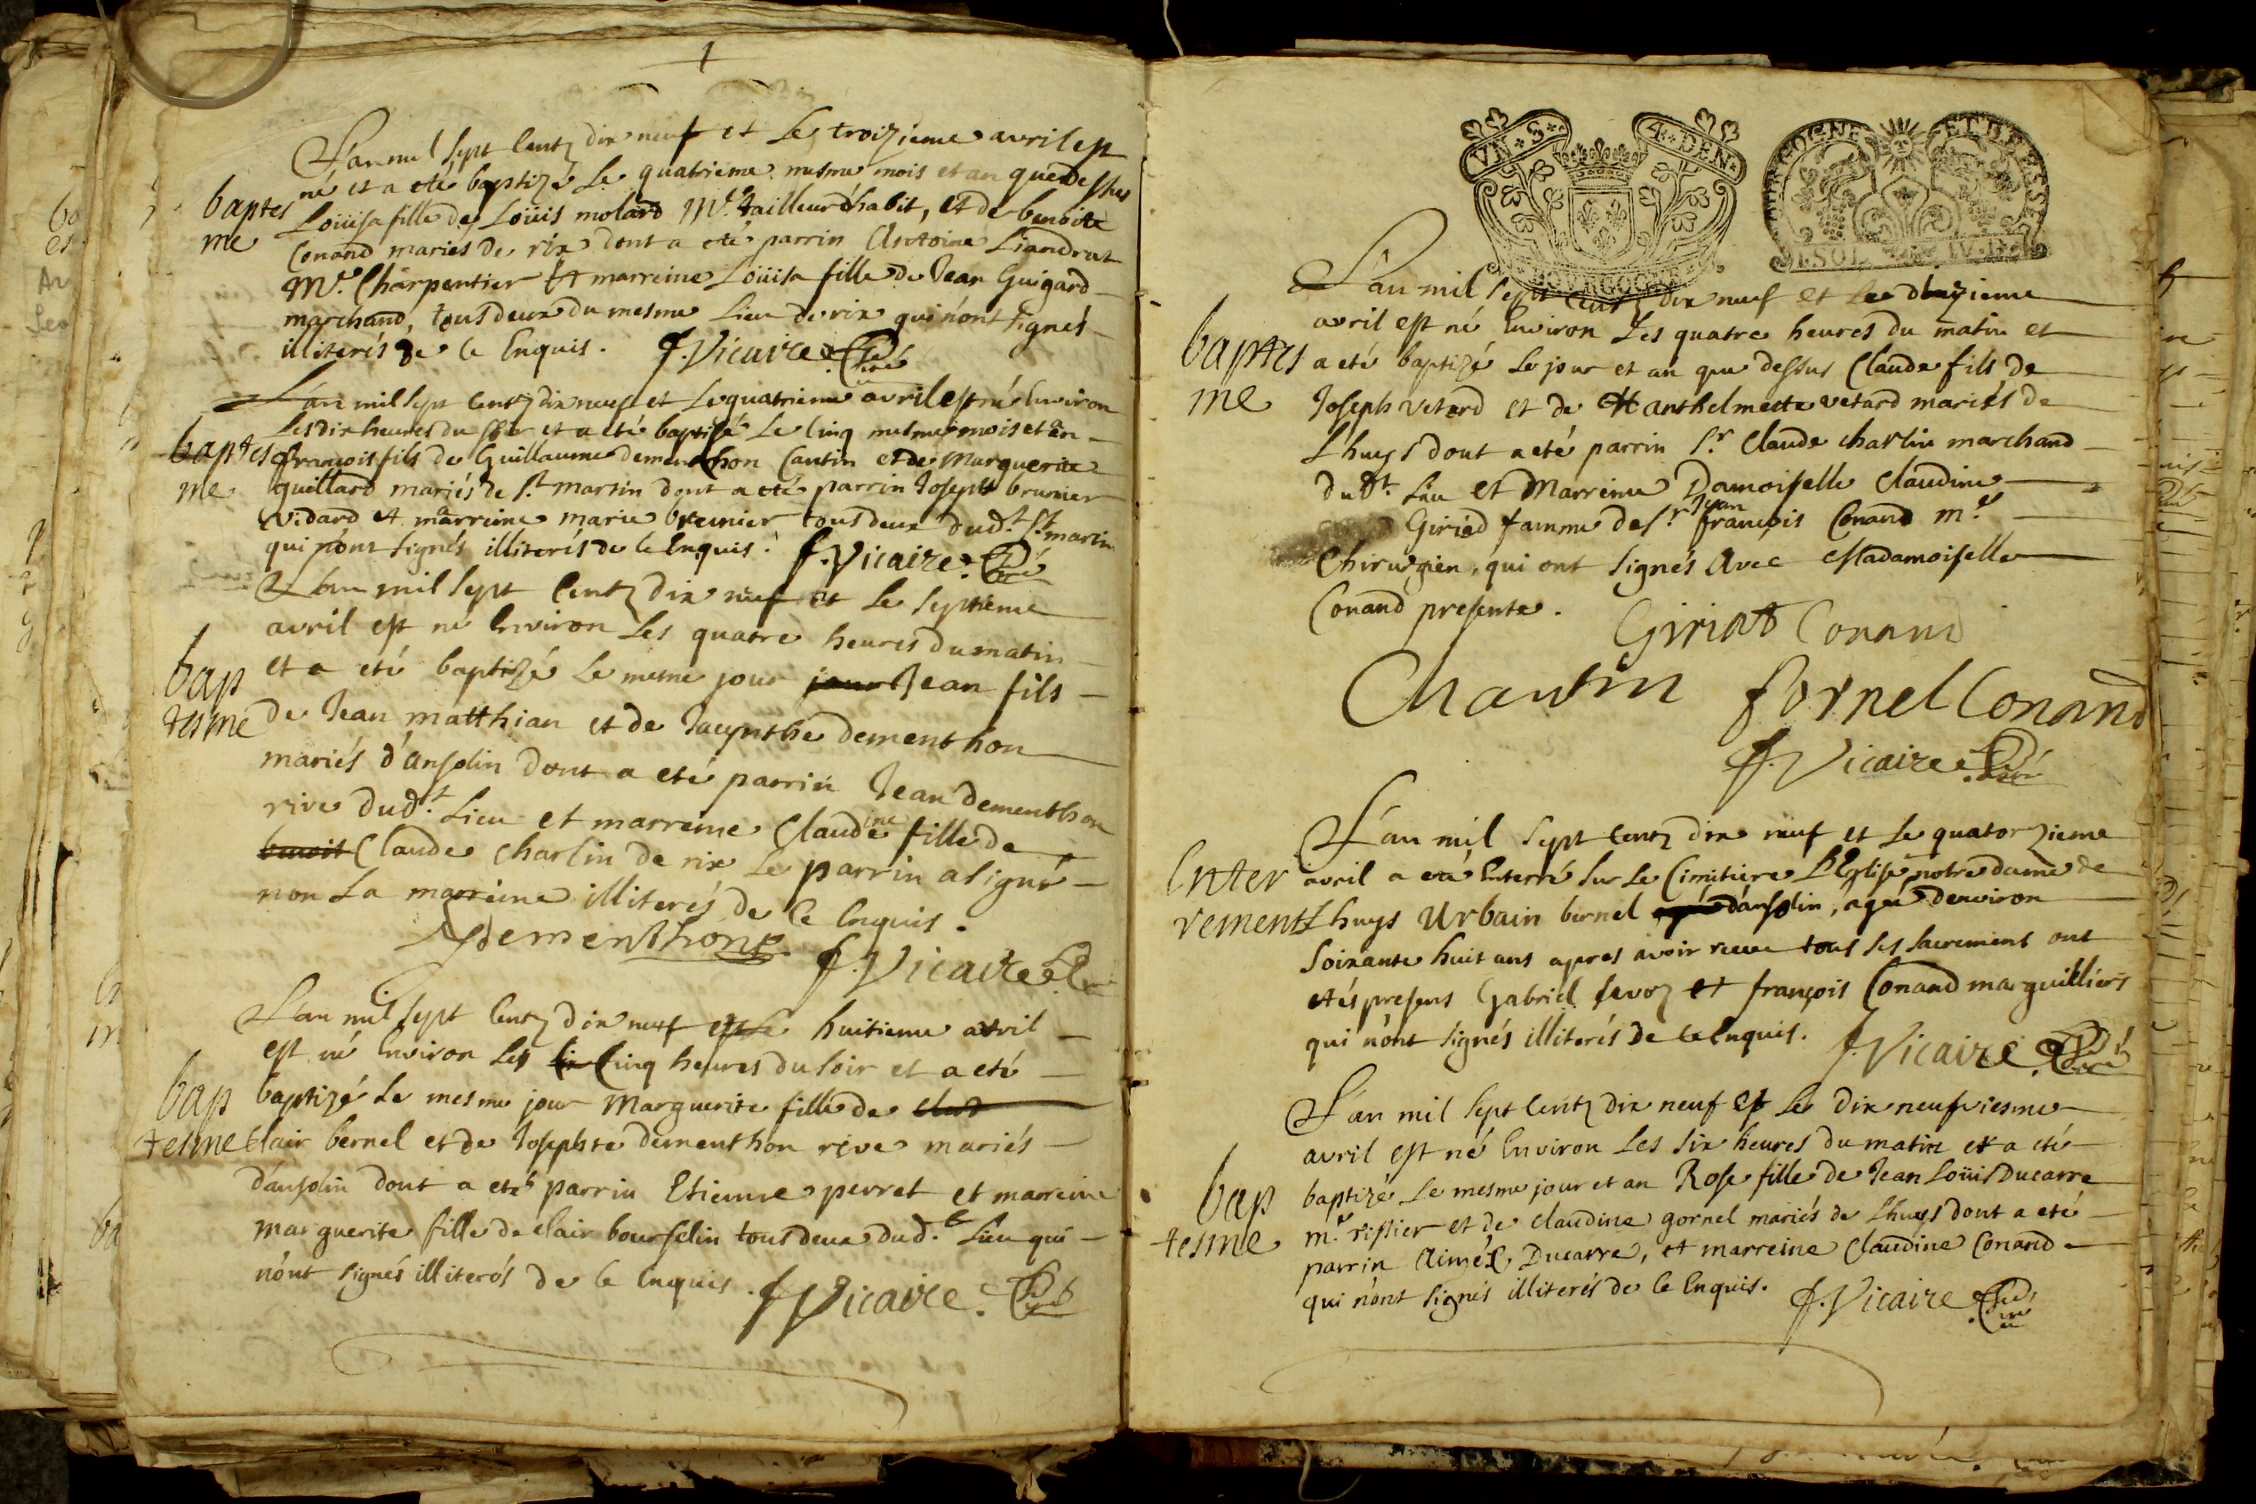 L'an mil sept Centz dix neuf et Le troizieme avril est
né et a eté baptizé Le quatrieme mesme mois et an que dessus
baptes
me
Loüisa fille de Loüis molard Mre. tailleur d'habit, et de benoite
Conand mariés de rix dont a eté parrin Antoine Liandrat
Mre. Charpentier Et marreine Loüisa fille de Jean Guigard
marchand, tous deux du mesme Lieu de rix qui n'ont signés
illiterés de ce Enquis. f. Vicaire Curé
L'an mil sept Centz dix neuf et Le quatrieme avril est né Environ
Les dix heures du soir et a eté baptisé Le Cinq mesme mois et an
baptes
me
françois fils de Guillaume dementhon Cantin et de Marguerite
quillard mariés de St. martin dont a eté parrin Joseph brunier
vidard et marreine marie brunier tous deux dud. St. martin
qui n'ont signés illiterés de ce Enquis. f. Vicaire Curé
L'an mil sept Centz dix neuf et Le septieme
avril est né Environ Les quatre heures du matin
et a eté baptizé Le mesme jour Jean fils
bap
tesme
de Jean matthian et de Jacynthe dementhon
mariés d'ansolin dont a eté parrin Jean dementhon
rive dudt. Lieu et marreine Claudine fille de
benoit Claude Charlin de rix Le parrin a signé
non La marreine illiterés de ce Enquis.
dementhon f. Vicaire Curé
L'an mil sept Centz dix neuf et Le huitieme avril
est né Environ Les Cinq heures du soir et a eté
bap
tesme
baptizé Le mesme jour Marguerite fille de
Clair bernel et de Josephte dementhon rive mariés
d'ansolin dont a eté parrin Etienne perret et marreine
Marguerite fille de Clair bourselin tous deux dud. Lieu qui
n'ont signés illiterés de ce Enquis. f. Vicaire Curé
VN. S. 4. DEN.
BOURGOGNE
BOURGOGNE ET BRESSE
L'an mil sept Centz dix neuf et Le
avril est né Environ Les quatre heures du matin et
baptes
me
a eté baptizé Le jour et an que dessus Claude fils de
Joseph vetard et de Anthelmette vetard mariés de
Lhuys dont a eté parrin Sr. Claude charlin marchand
dudt. Lieu et Marreine Damoiselle Claudine
Giriod famme de Sr. Jean françois Conand mre.
Chirurgien, qui ont signés Avec Madamoiselle
Conand presente.
Giriat Conand
Charlin fornel Conand
f. Vicaire Curé
L'an mil sept Centz dix neuf et Le quatorzieme
Enter
rement
avril a eté Enterré sur Le Cimitiere L'Eglise notre dame de
Lhuys Urbain bernel d'ansolin, agé d'environ
soixante huit ans apres avoir receu tous ses sacrements ont
etés presens Gabriel savoz et françois Conand marguilliers
qui n'ont signés illiterés de ce Enquis. f. Vicaire Curé
L'an mil sept Centz dix neuf et Le dix neufviesme
avril est né Environ Les six heures du matin et a eté
bap
tesme
baptizé Le mesme jour et an Rose fille de Jean Loüis Ducarre
mre. tissier et de Claudine gornel mariés de Lhuys dont a eté
parrin Aimé Ducarre, et marreine Claudine Conand
qui n'ont signés illiterés de ce Enquis. f. Vicaire Curé